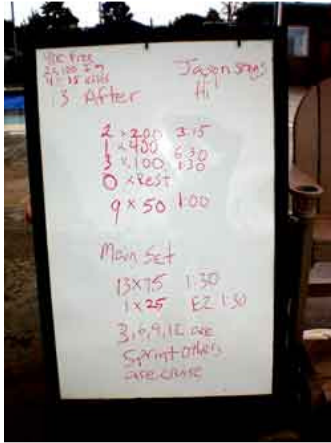 400 Free
2 x 100 I M
4 x 75 kicks
13 After
Jason says
Hi
2 x 200 3:15
1 x 400 6:30
3 x 100 1:30
0 x Rest
9 x 50 1:00
Main Set
13x75 1:30
1 x 25 EZ 1:30
3,6,9,12 are
Sprint others
are cruise